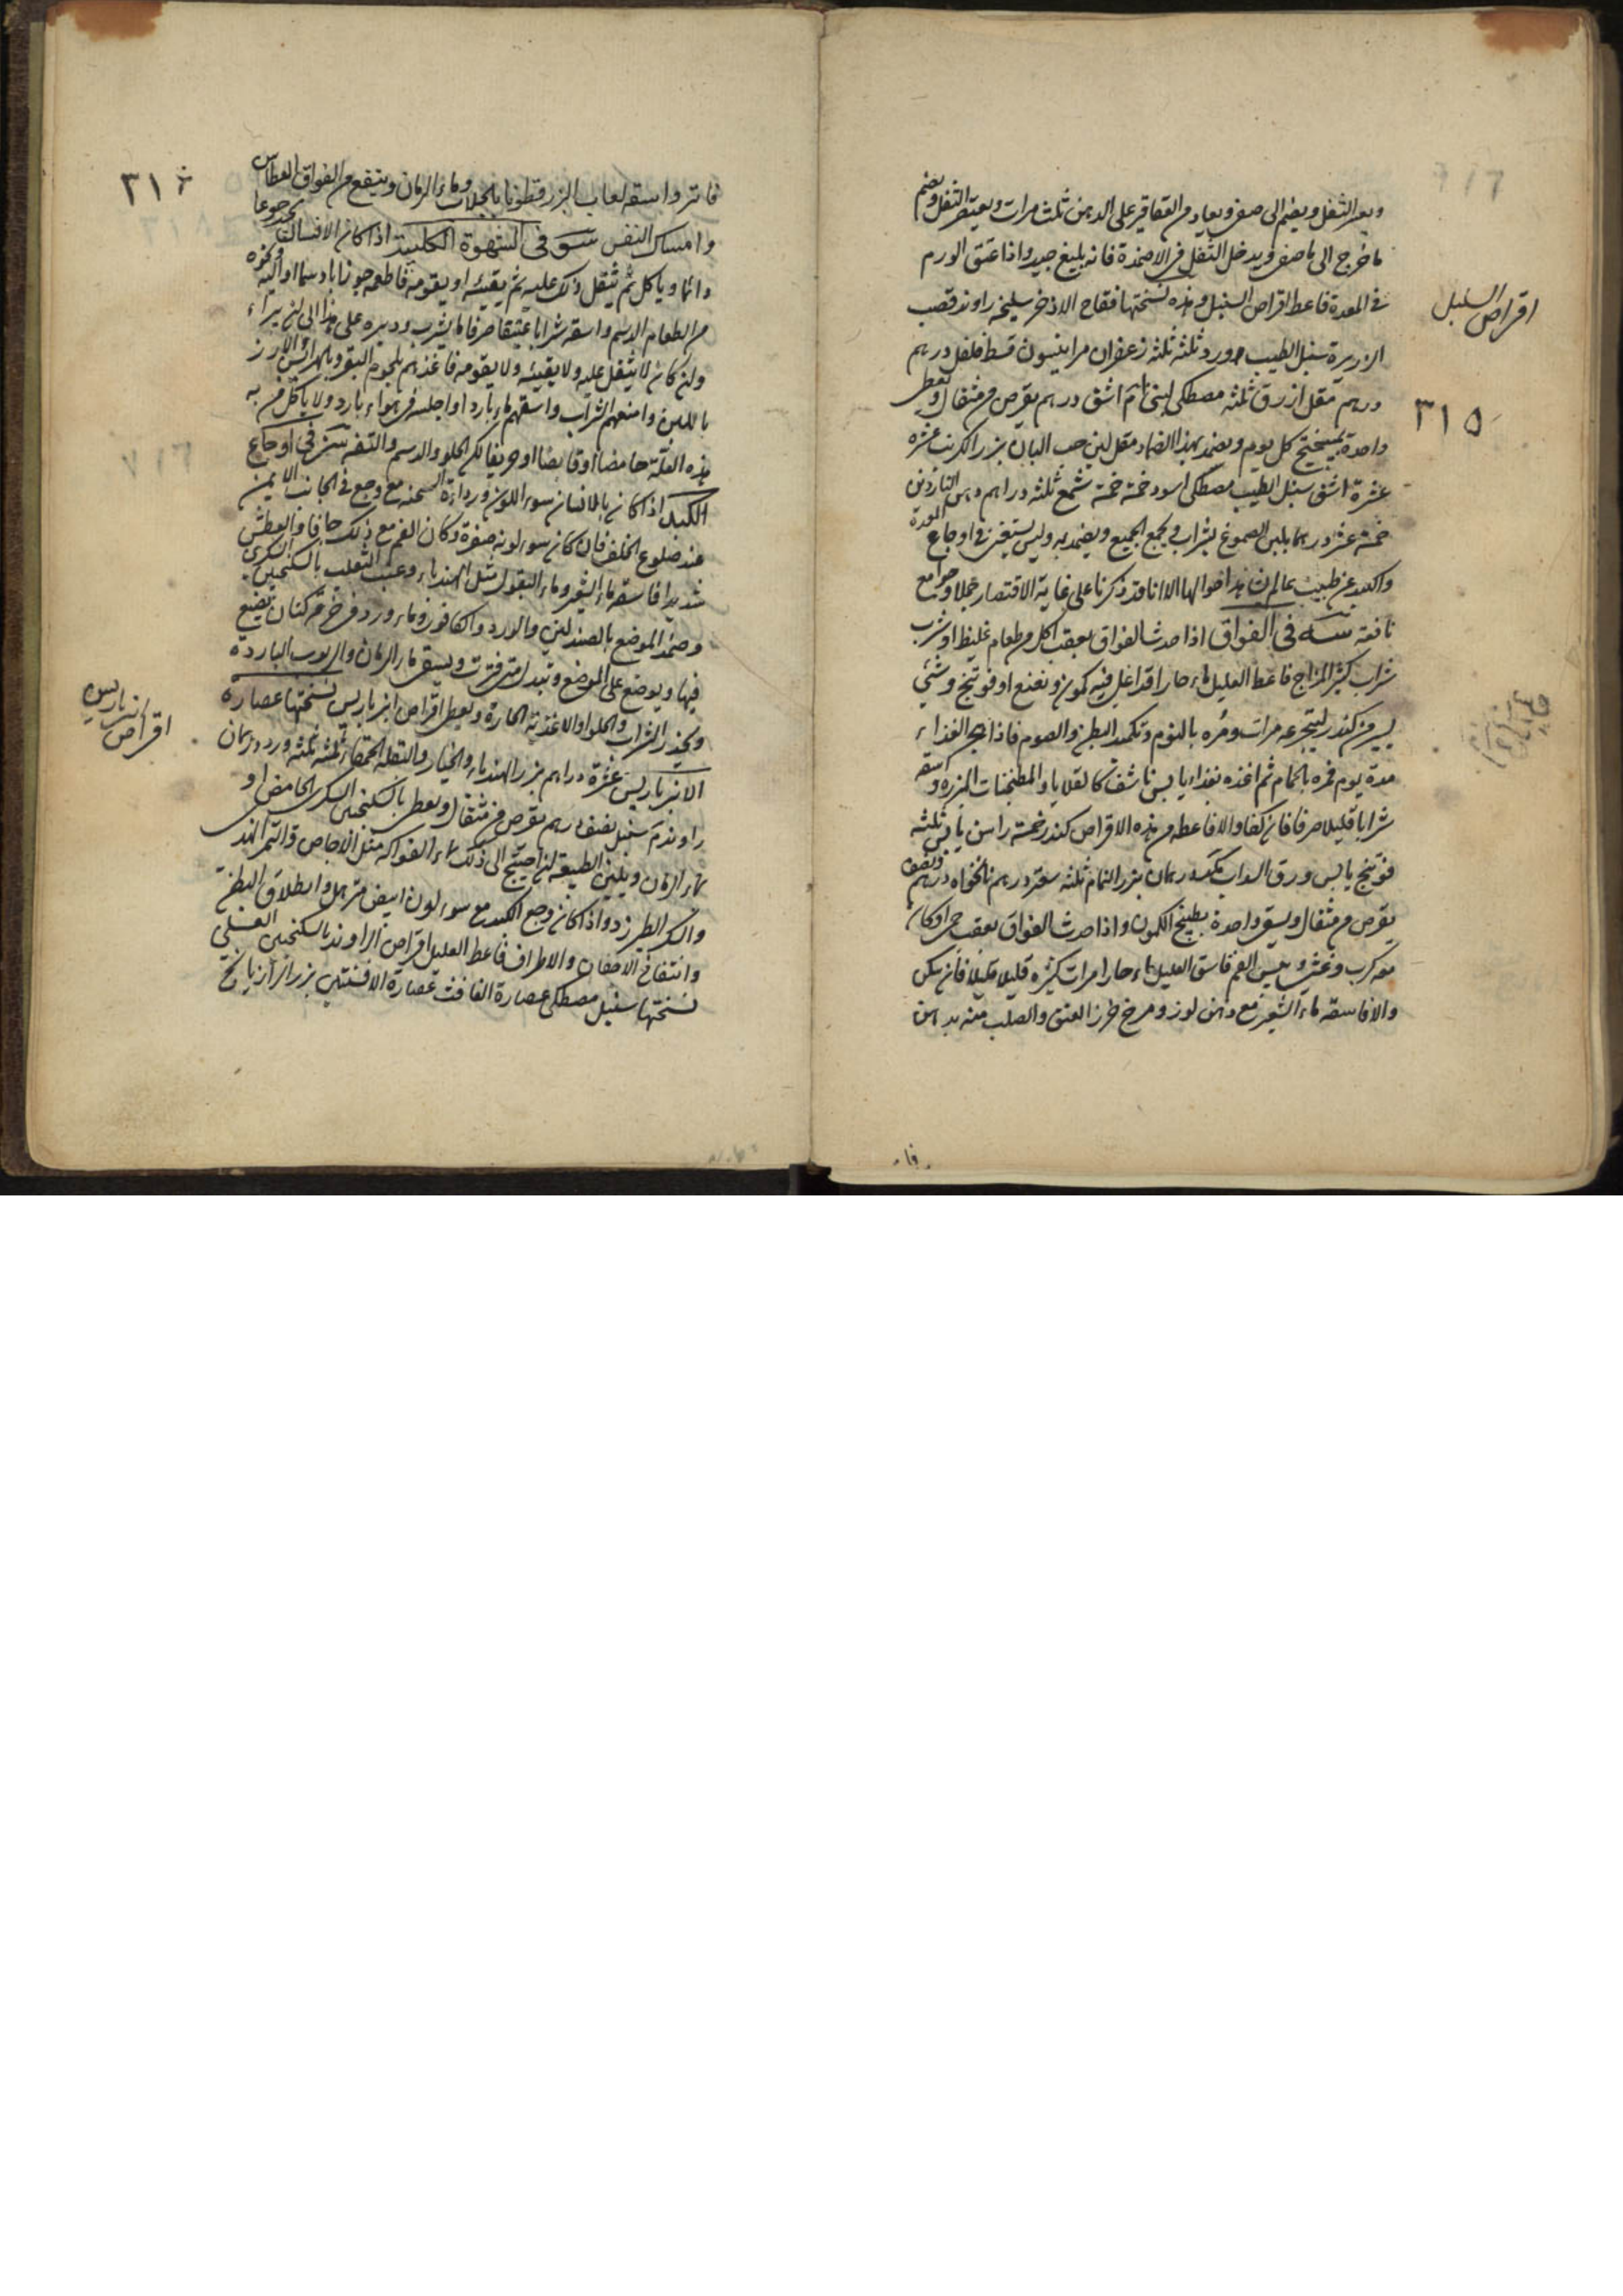 ويعصر الثفل ويضم الى صفى ويعاد من العقاقير على الدهن ثلث مرات ويعتصر الثفل ويضم
ما خرج الى ما صفى ويدخل الثفل فى الاضمدة فانه بليغ جيد واذا عتق الورم
فى المعدة فاعط اقراص السنبل وهذه نسختها فقاح الاذخر سليخه راوند قصب
اقراص السنبل
الذريرة سنبل الطيب ورد ثلثه ثلثه زعفران مر انيسون قسط فلفل درهم
درهم مقل ازرق ثلثه مصطكى لبنى اشق درهم يقرص من مثقال ويعطى
٣١٥
واحدة بميبختج كل يوم ويضمد بهذا الضماد مقل لين حب البان بزر الكرنب عشره
عشرة اشق سنبل الطيب مصطكى اسود خمسة خمسة شمع ثلثه دراهم دهن الناردين
خمسة عشر درهما يلين الصموغ بشراب ويجمع الجميع ويضمد به وليس يستغنى فى اوجاع المعدة
والكبد عن طبيب عالم احوالها الا انا قد ذكرنا على غاية الاقتصار جملا وجوامع
نافعة فى الفواق اذا حدث الفواق بعقب اكل من طعام غليظ او شرب
شراب كثير المزاج فاعط العليل ماء حارا قد اغلى فيه كمون ونعنع او فوتنج وشئ
يسير من كندر ليتجرعه مرات ومره بالنوم وتكميد البطن والصوم فاذا هجر الغذاء
مدة يوم فمره بالحمام ثم اغذه بغذاء يابس ناشف كالقلايا والمطجنات المبزره واسقه
شرابا قليلا صرفا فان كفا والا فاعطه من هذه الاقراص كندر خمسة راسن يابس ثلثه
فوتنج يابس ورق السداب درهمان بزر النمام ثلثه سعتر درهم نانخواه درهم ونصف
يقرص من مثقال ويسقى واحدة بطبيخ الكمون واذا حدث الفواق بعقب حمى او كان
معه كرب وغثى ويبس الفم فاسق العليل ماء حارا مرات كثيره قليلا قليلا فان سكن
والا فاسقه ماء الشعير مع دهن لوز ومرخ خرز العنق والصلب منه بدهن
فا
فاتر واسقه لعاب البزرقطونا بالجلاب وماء الرمان وينفع من الفواق العطاس
٣١٦
وامساك النفس فى الشهوة الكلبية اذا كان الانسان يجد جوعا
دائما وياكل ثم يثقل ذلك عليه ثم يقيئه او يقومه فاطعمه جوزابا دسما او الية ونحوه
من الطعام الدسم واسقه شرابا عتيقا صرفا ما يشرب ودبره على هذا الى ان يبراء
وان كان لا يثقل عليه ولا يقيئه ولا يقومه فاغذهم بلحوم البقر وبالهرائس والارز
باللبن وامنعهم الشراب واسقهم ماء باردا واجلسهم فى هواء بارد ولا ياكل من به
هذه العلة حامضا او قابضا او حريفا لكن الحلو والدسم والتفه فى اوجاع
الكبد اذا كان بالانسان سوء اللون ورداءة السحنه مع وجع فى الجانب الايمن
عند ضلوع الخلف فان كان سوء لونه صفرة وكان الفم مع ذلك جافا والعطش
شديدا فاسقه ماء الشعير وماء البقول مثل الهندباء وعنب الثعلب بالسكنجبين السكرى
وضمد الموضع بالصندلين والورد والكافور وماء ورد فى خرقة كتان يضع
فيها ويوضع على الموضع وتبدل متى فترت ويسقى ماء الرمان والربوب الباردة
ويحذر الشراب والحلواء والاغذية الحارة ويعطى اقراص انبرباريس نسختها عصارة
اقراص انبرباريس
الانبرباريس عشرة دراهم بزر الهندباء والخيار والبقلة الحمقاء ثلثه ثلثه ورد درهمان
راوند سنبل نصف درهم يقرص من مثقال ويعطى بالسكنجبين السكرى الحامض او
بماء الرمان ويلين الطبيعة ان احتيج الى ذلك بماء الفواكه مثل الاجاص والتمر الهندى
والسكر الطبرزد واذا كان وجع الكبد مع سوء لون ابيض مترهل وانطلاق البطن
وانتفاخ الاجفان والاطراف فاعط العليل اقراص الراوند بالسكنجبين العسلى
نسختها سنبل مصطكى عصارة الغافث عصارة الافسنتين بزر الرازيانج